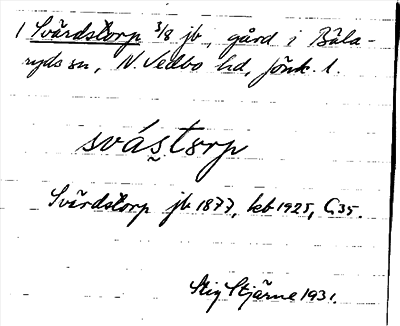 1 Svärdstorp 3/8 jb, gård i Bäla-
ryds sn, N. Vedbo hd, Jönk. l.
svás̬torp
Svärdstorp jb 1877, kb 1925, G35.
Stig Stjärne 1931.